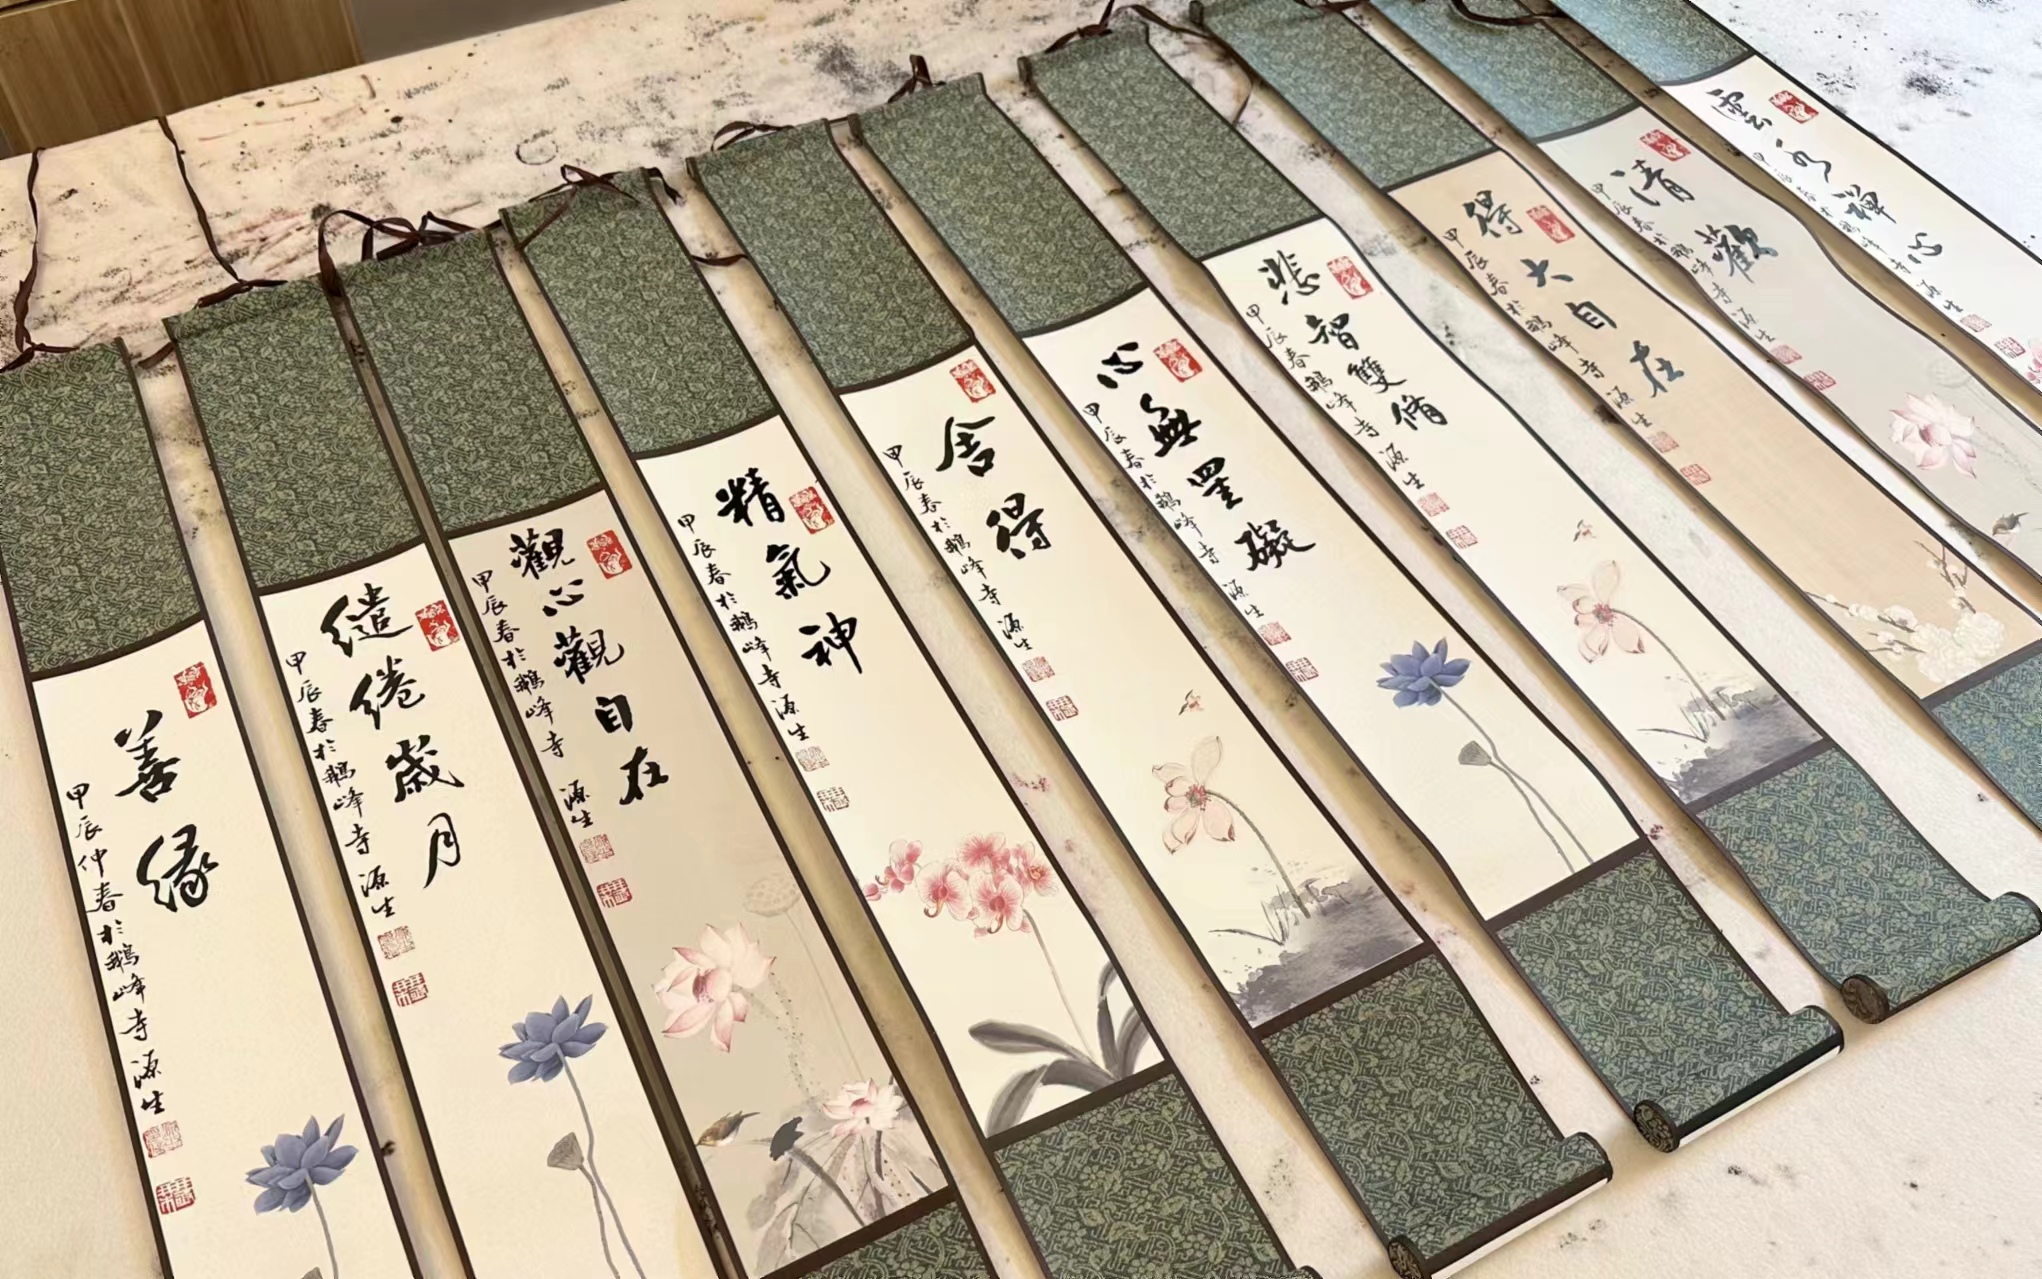 善緣
甲辰仲春於鵝峰寺源生
繾綣歲月
甲辰春於鵝峰寺源生
觀心觀自在
甲辰春於鵝峰寺源生
精氣神
甲辰春於鵝峰寺源生
舍得
甲辰春於鵝峰寺源生
心無罣礙
甲辰春於鵝峰寺源生
悲智雙脩
甲辰春於鵝峰寺源生
得大自在
甲辰春於鵝峰寺源生
清歡
甲辰春於鵝峰寺源生
雲水禪心
甲辰春於鵝峰寺源生